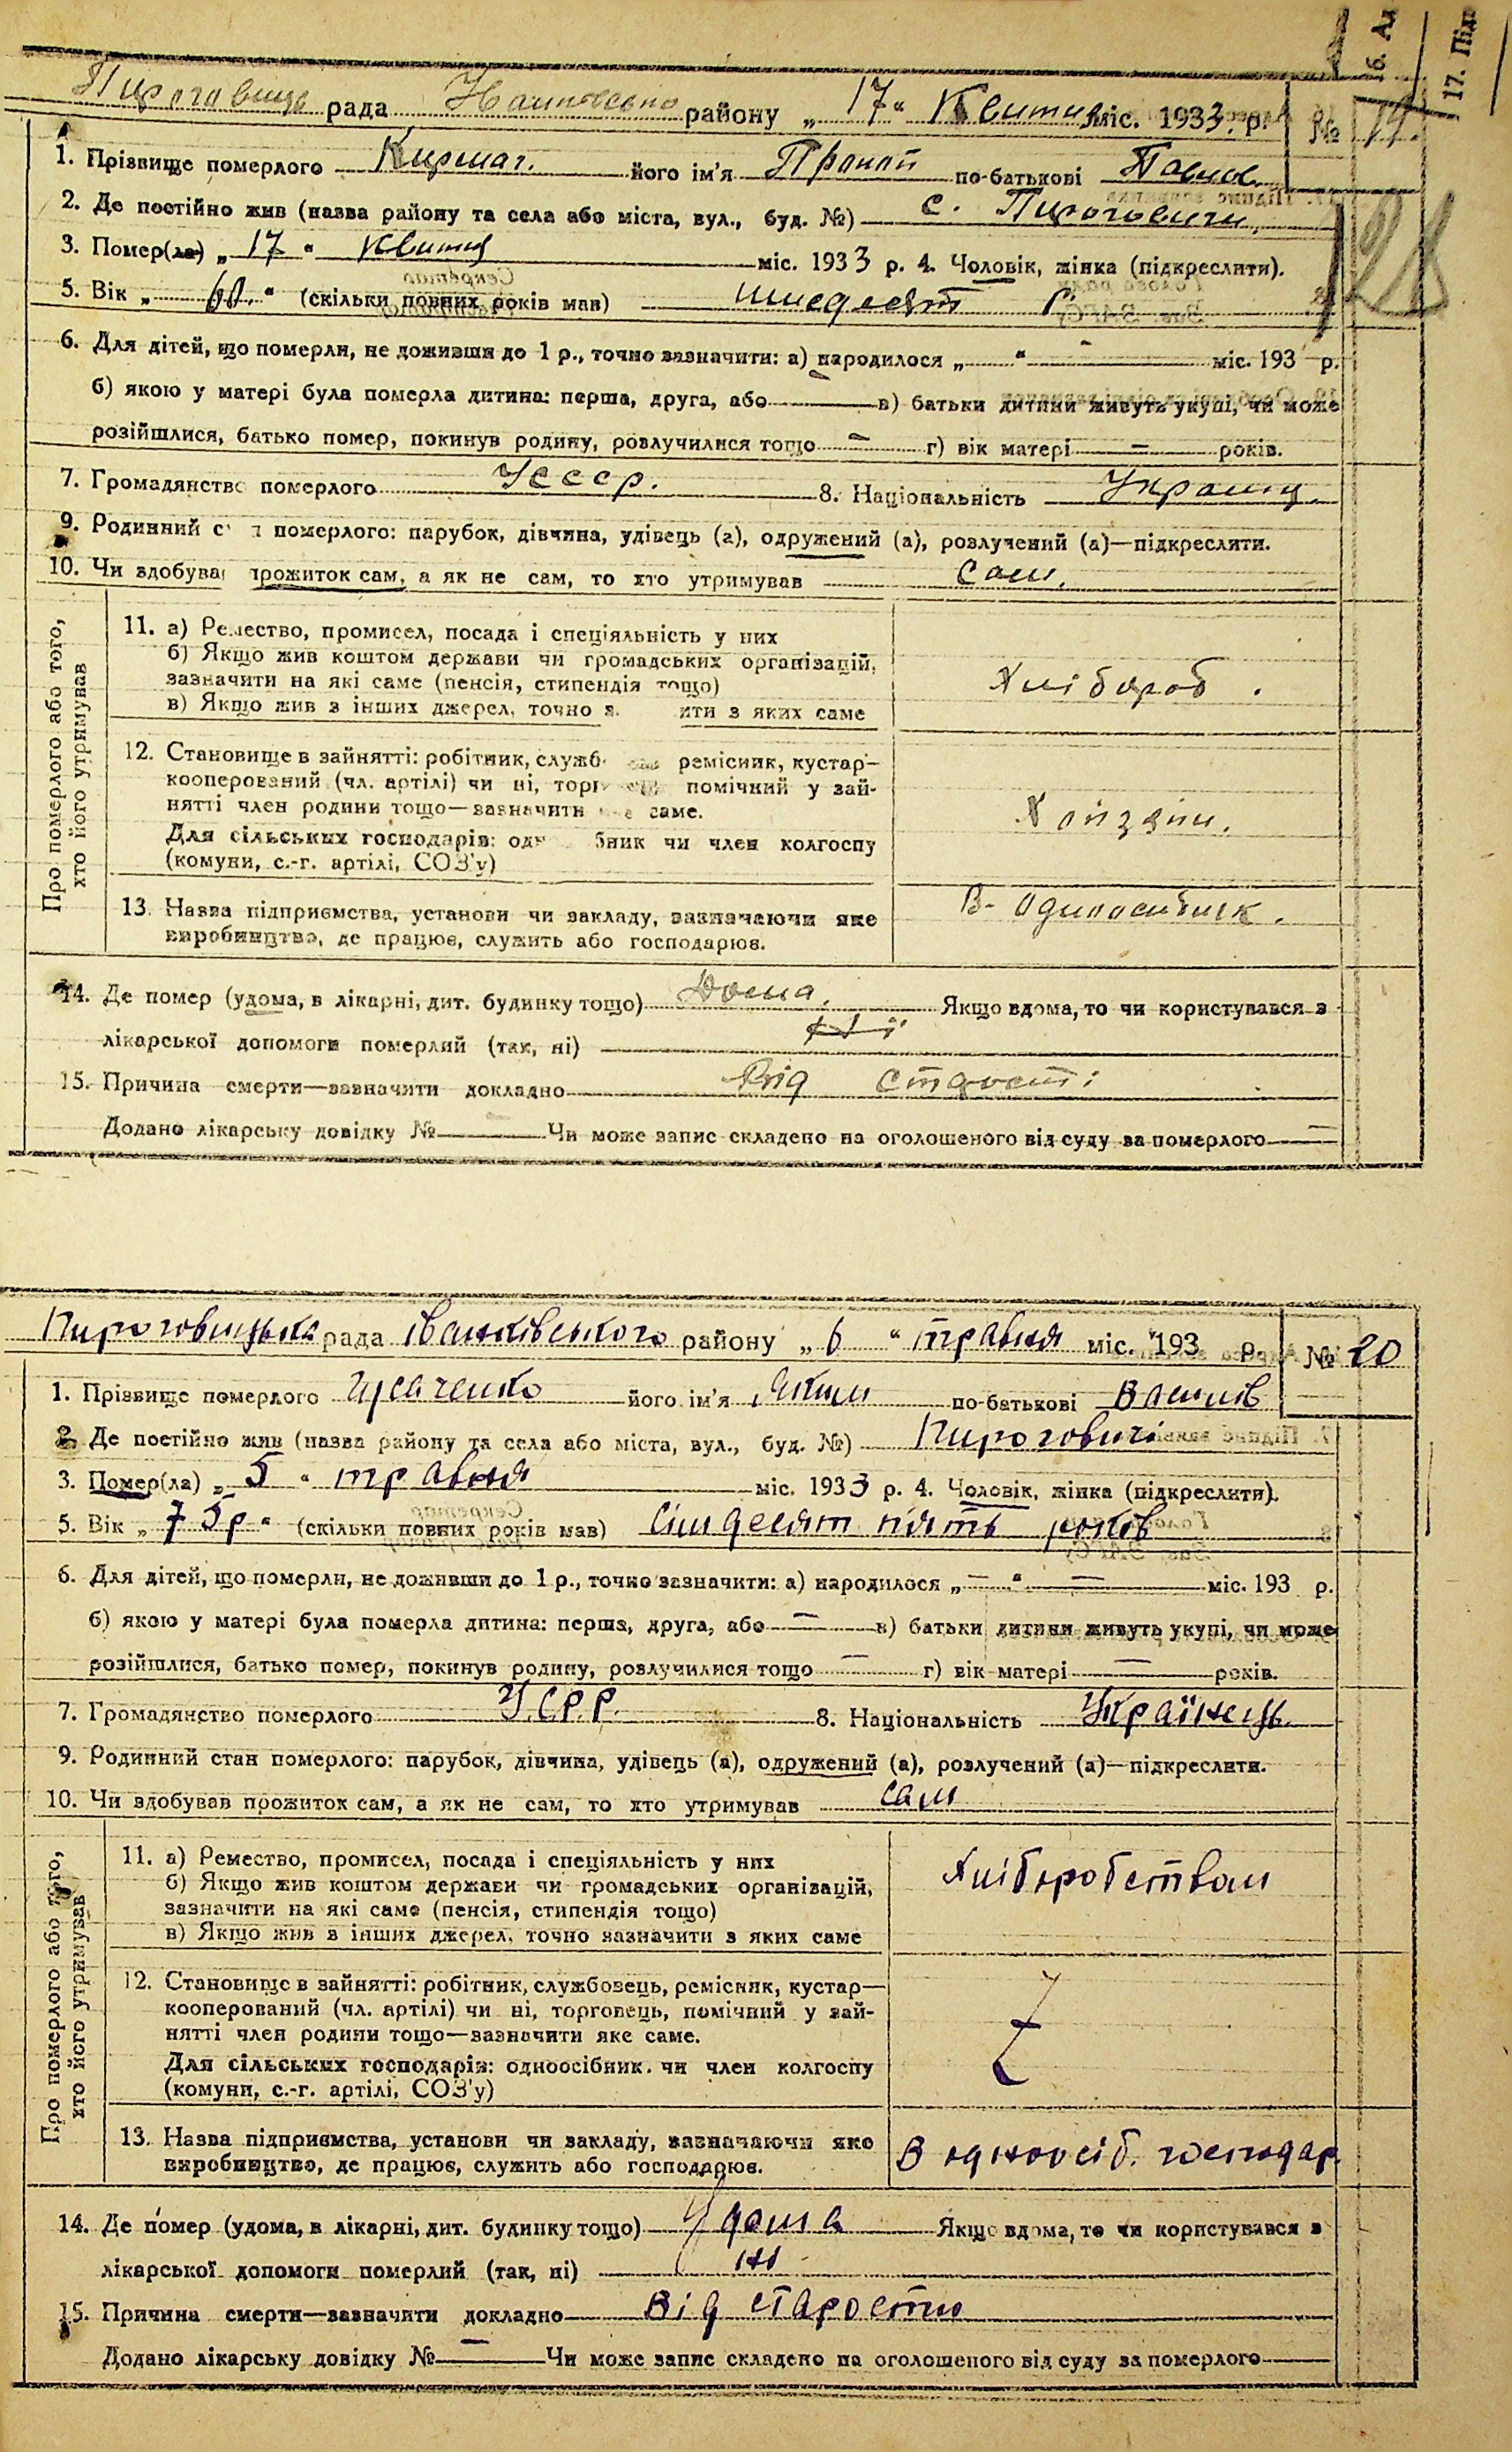 16. Ад
17. Підп
рада району „17“ Квітня міс. 1933 р. № 19.
1. Прізвище померлого Кирмач. його ім'я Пракоп по-батькові Павлов.
2. Де постійно жив (назва району та села або міста, вул., буд. №) с. Пироговичи.
128
3. Помер(ла) „17“ Квітня міс. 1933 р. 4. Чоловік, жінка (підкреслити).
5. Вік „60.“ (скільки повних років мав) шисдесят р.
6. Для дітей, що померли, не доживши до 1 р., точно зазначити: а) народилося „ “ — міс. 193 р.
б) якою у матері була померла дитина: перша, друга, або в) батьки дитини живуть укупі, чи може
розійшлися, батько помер, покинув родину, розлучилися тощо — г) вік матері — років.
7. Громадянство померлого Усср. 8. Національність Украинц.
9. Родинний с н померлого: парубок, дівчина, удівець (а), одружений (а), розлучений (а)—підкреслити.
10. Чи здобував прожиток сам, а як не сам, то хто утримував сам.
Про померлого або того, хто його утримував
11. а) Ремество, промисел, посада і спеціяльність у них
б) Якщо жив коштом держави чи громадських організацій,
зазначити на які саме (пенсія, стипендія тощо)
в) Якщо жив з інших джерел, точно з ити з яких саме
Хлібороб.
12. Становище в зайнятті: робітник, служб ремісник, кустар—
кооперований (чл. артілі) чи ні, торг помічний у зай-
нятті член родини тощо—зазначити саме.
Для сільських господарів: од бник чи член колгоспу
(комуни, с.-г. артілі, СОЗ'у)
Хоїзяін.
13. Назва підприємства, установи чи закладу, зазначаючи яке
виробництво, де працює, служить або господарює.
В- Одиносибник.
14. Де помер (удома, в лікарні, дит. будинку тощо) Дома. Якщо вдома, то чи користувався з
лікарської допомоги померлий (так, ні) Ні
15. Причина смерти—зазначити докладно Від старості
Додано лікарську довідку № Чи може запис складено на оголошеного від суду за померлого —
Пироговицька рада Іванківського району „6“ травня міс. 193 р. № 20
1. Прізвище померлого Ісаченко його ім'я Яким по-батькові Васильів
2. Де постійно жив (назва району та села або міста, вул., буд. №) Пироговичі
3. Помер(ла) „5“ травня міс. 1933 р. 4. Чоловік, жінка (підкреслити).
5. Вік „75р“ (скільки повних років мав) Сімдесят п'ять років
6. Для дітей, що померли, не доживши до 1 р., точно зазначити: а) народилося „—“ — міс. 193 р.
б) якою у матері була померла дитина: перша, друга, або — в) батьки дитини живуть укупі, чи може
розійшлися, батько помер, покинув родину, розлучилися тощо — г) вік матері — років.
7. Громадянство померлого У.С.Р.Р. 8. Національність Українець.
9. Родинний стан померлого: парубок, дівчина, удівець (а), одружений (а), розлучений (а)—підкреслити.
10. Чи здобував прожиток сам, а як не сам, то хто утримував сам
Про померлого або того, хто його утримував
11. а) Ремество, промисел, посада і спеціяльність у них
б) Якщо жив коштом держави чи громадських організацій,
зазначити на які саме (пенсія, стипендія тощо)
в) Якщо жив з інших джерел, точно зазначити з яких саме
Хліборобством
12. Становище в зайнятті: робітник, службовець, ремісник, кустар—
кооперований (чл. артілі) чи ні, торговець, помічний у зай-
нятті член родини тощо—зазначити яке саме.
Для сільських господарів: одноосібник чи член колгоспу
(комуни, с.-г. артілі, СОЗ'у)
13. Назва підприємства, установи чи закладу, зазначаючи яке
виробництво, де працює, служить або господарює.
В одноосіб. господар.
14. Де помер (удома, в лікарні, дит. будинку тощо) Удома Якщо вдома, то чи користувався з
лікарської допомоги померлий (так, ні) ні
15. Причина смерти—зазначити докладно Від старости
Додано лікарську довідку № — Чи може запис складено на оголошеного від суду за померлого